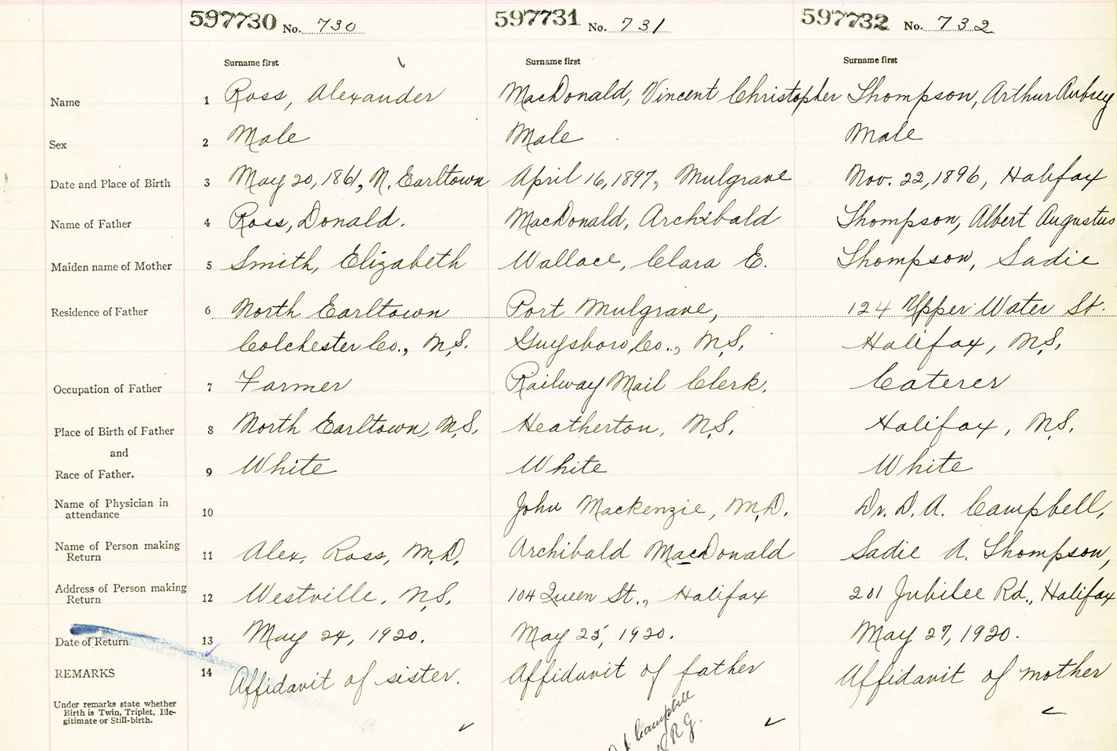 597730 No. 730 597731 No. 731 597732 No. 732
Surname first Surname first Surname first
Name 1 Ross, Alexander MacDonald, Vincent Christopher Thompson, Arthur Aubrey
Sex 2 Male Male Male
Date and Place of Birth 3 May 20, 1861, N. Earltown April 16, 1897, Mulgrave Nov. 22, 1896, Halifax
Name of Father 4 Ross, Donald. MacDonald, Archibald Thompson, Albert Augustus
Maiden name of Mother 5 Smith, Elizabeth Wallace, Clara E. Thompson, Sadie
Residence of Father 6 North Earltown Port Mulgrave, 124 Upper Water St.
Colchester Co., N.S. Guysboro, Co., N.S. Halifax, N.S.
Occupation of Father 7 Farmer Railway Mail Clerk. Caterer
Place of Birth of Father 8 North Earltown, N.S. Heatherton, N.S. Halifax, N.S.
and
Race of Father. 9 White White White
Name of Physician in
attendance 10 John Mackenzie, M.D. Dr. D. A. Campbell,
Name of Person making
Return 11 Alex. Ross, M.D. Archibald MacDonald Sadie A. Thompson,
Address of Person making
Return 12 Westville, N.S. 104 Queen St., Halifax 201 Jubilee Rd., Halifax
Date of Return 13 May 24, 1920. May 25, 1920. May 27, 1920.
REMARKS 14 Affidavit of sister. Affidavit of father Affidavit of mother
Under remarks state whether
Birth is Twin, Triplet, Ille-
gitimate or Still-birth.
Campbell
R G.